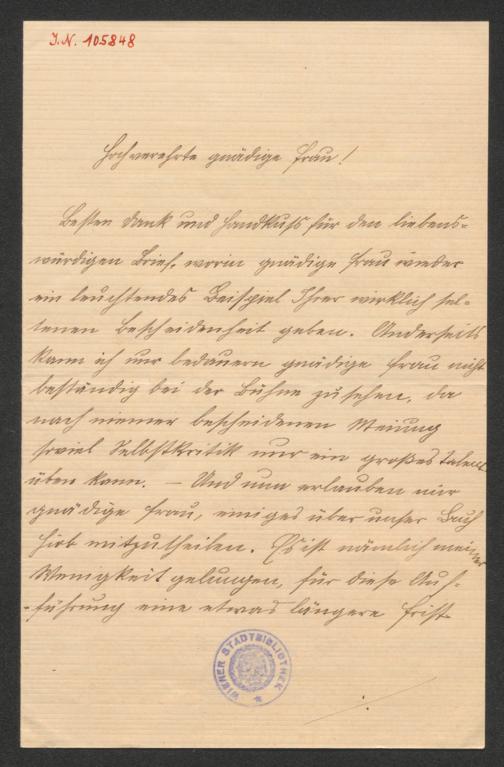 J.N. 105848
Hochverehrte gnädige Frau!
Besten Dank und Handkuss für den liebens-
würdigen Brief, worin gnädige Frau wieder
ein leuchtendes Beispiel Ihrer wirklich sel-
tenen Bescheidenheit geben. Anderseits
kann ich nur bedauern gnädige Frau nicht
beständig bei der Bühne zu sehen, da
nach meiner bescheidenen Meinung
soviel Selbstkritik nur ein großes Talent
üben kann. — Und nun erlauben mir
gnädige Frau, einiges über unser
mitzutheilen. Es ist nämlich meiner
Wenigkeit gelungen, für diese Auf-
führung eine etwas längere Frist
WIENER STADTBIBLIOTHEK